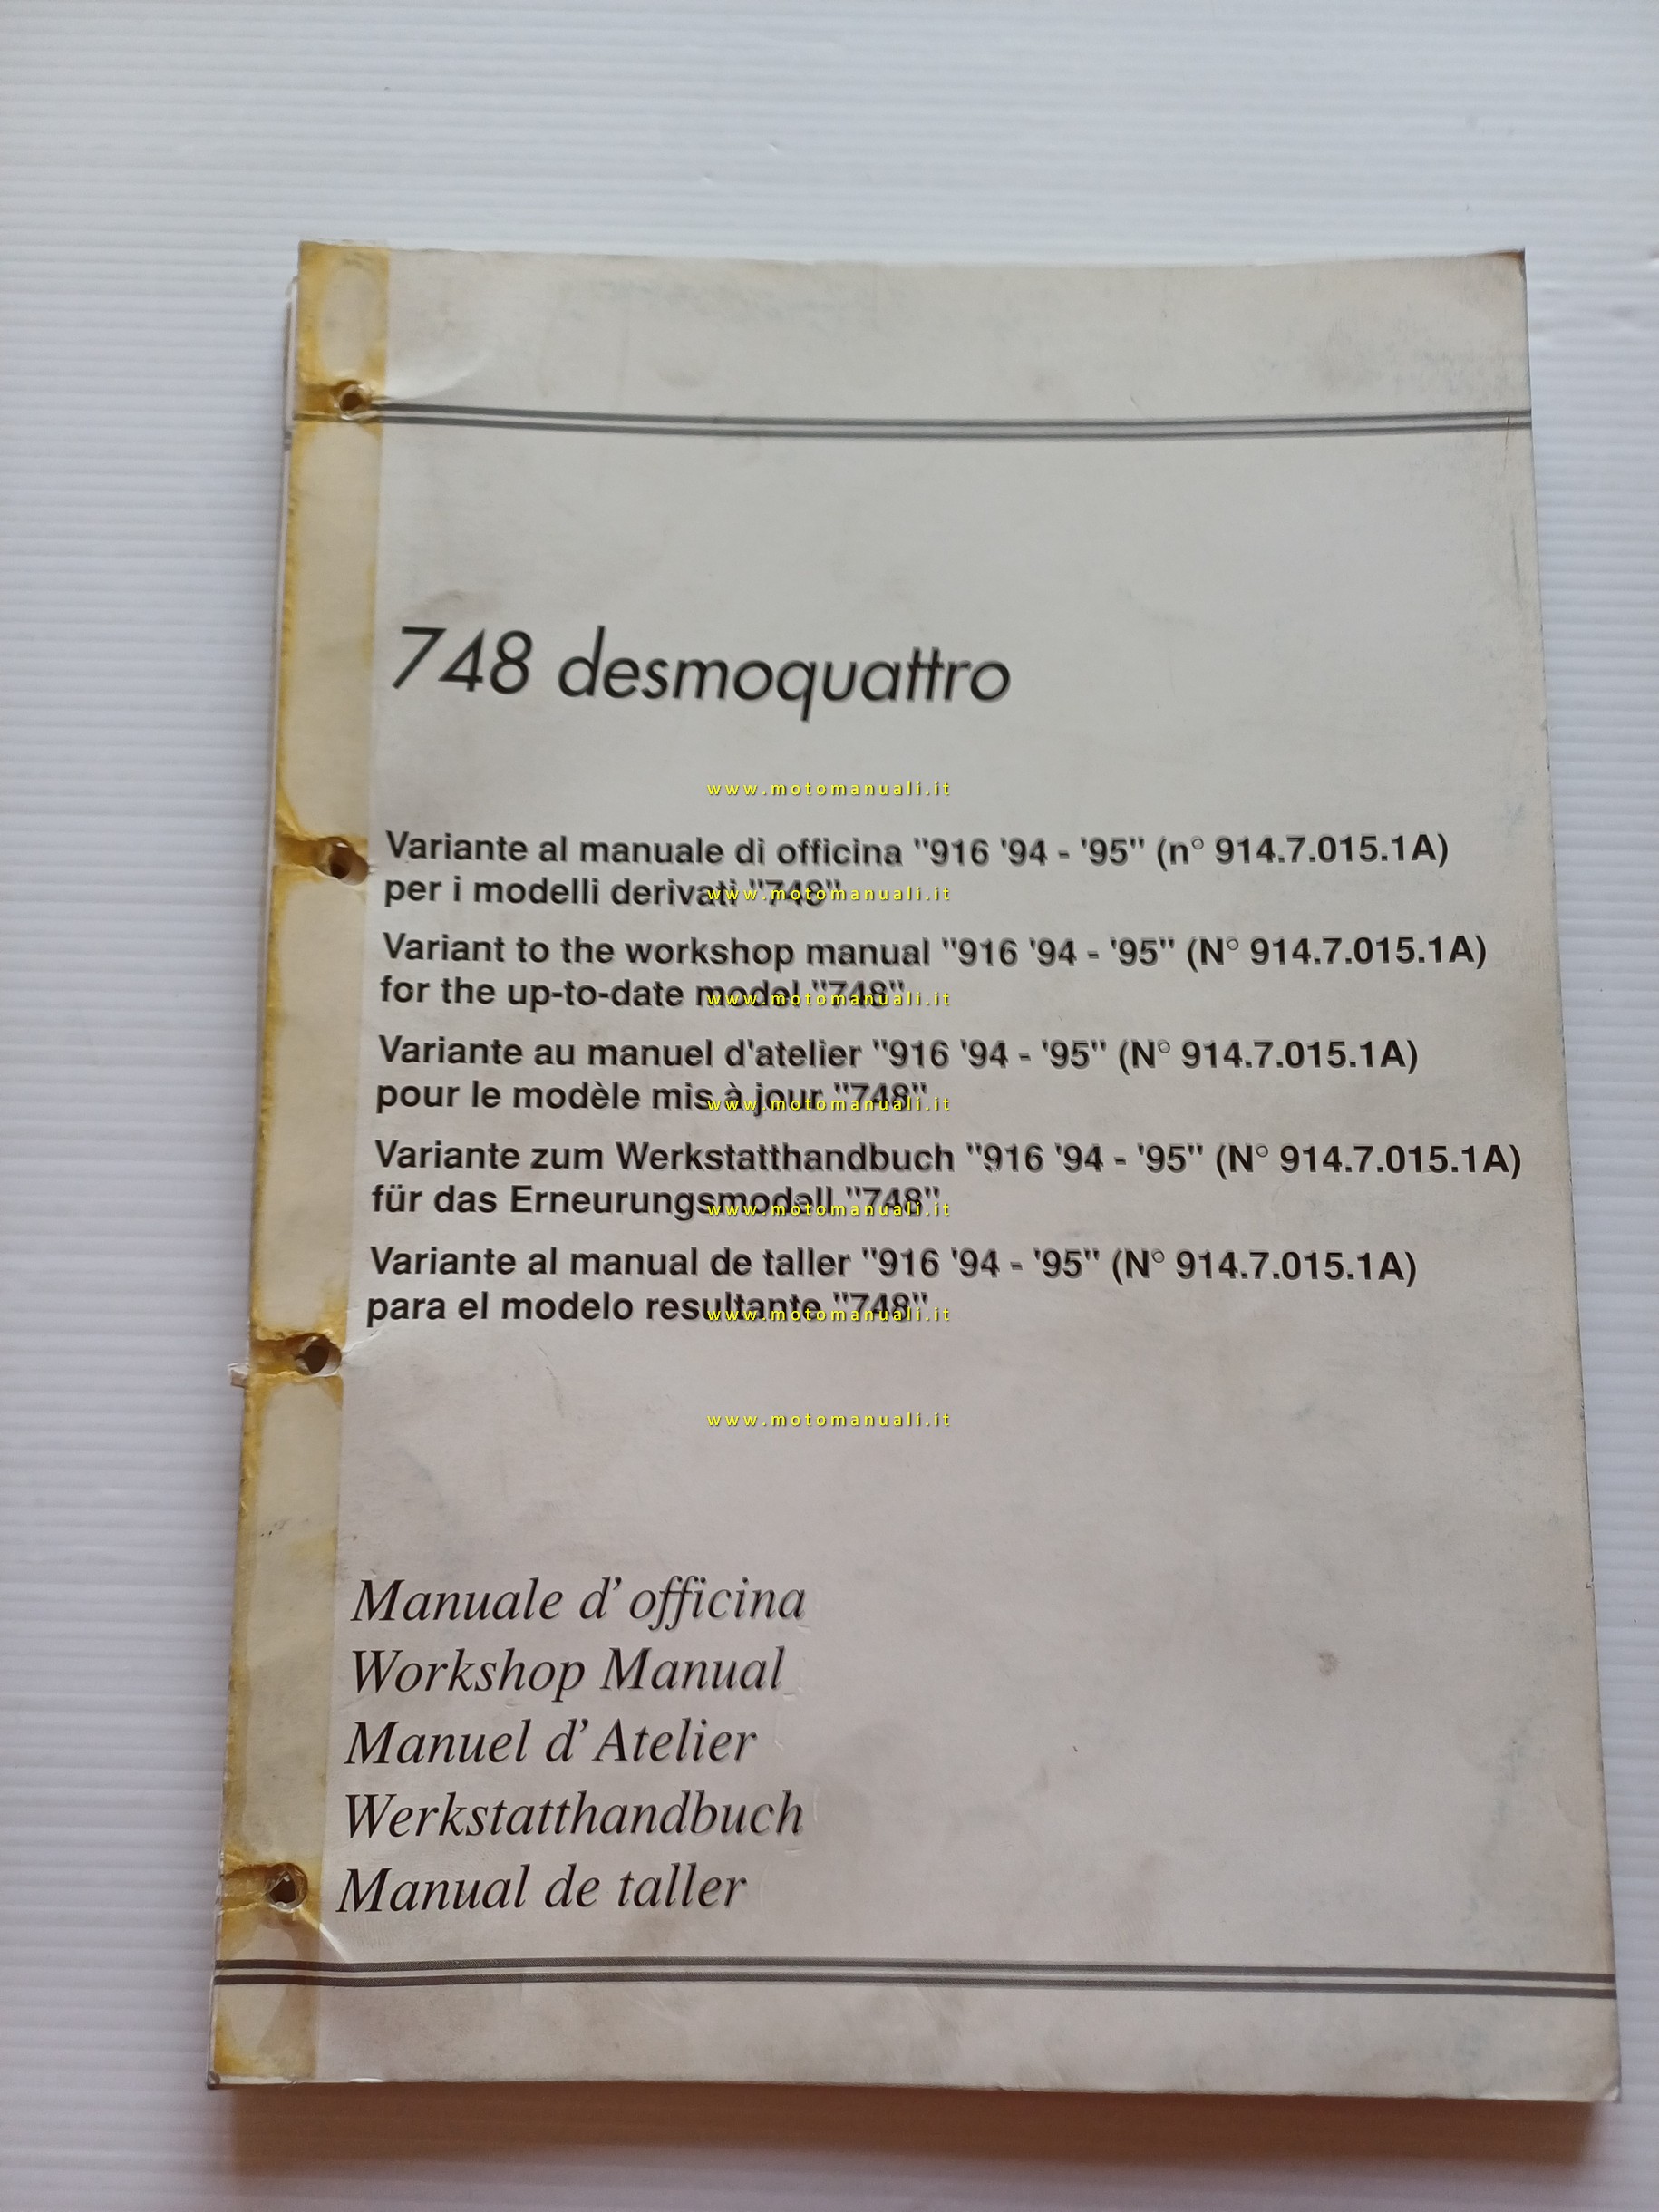 748 desmoquattro
www.motomanuali.it
Variante al manuale di officina "916 '94 - '95" (n° 914.7.015.1A)
per i modelli derivati "748"
www.motomanuali.it
Variant to the workshop manual "916 '94 - '95" (N° 914.7.015.1A)
for the up-to-date model "748"
www.motomanuali.it
Variante au manuel d'atelier "916 '94 - '95" (N° 914.7.015.1A)
pour le modèle mis à jour "748"
www.motomanuali.it
Variante zum Werkstatthandbuch "916 '94 - '95" (N° 914.7.015.1A)
für das Erneurungsmodell "748"
www.motomanuali.it
Variante al manual de taller "916 '94 - '95" (N° 914.7.015.1A)
para el modelo resultante "748"
www.motomanuali.it
www.motomanuali.it
Manuale d'officina
Workshop Manual
Manuel d'Atelier
Werkstatthandbuch
Manual de taller